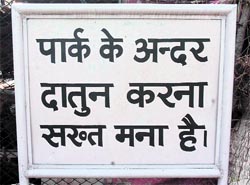 पार्क के अन्दर
दातुन करना
सख्त मना है।